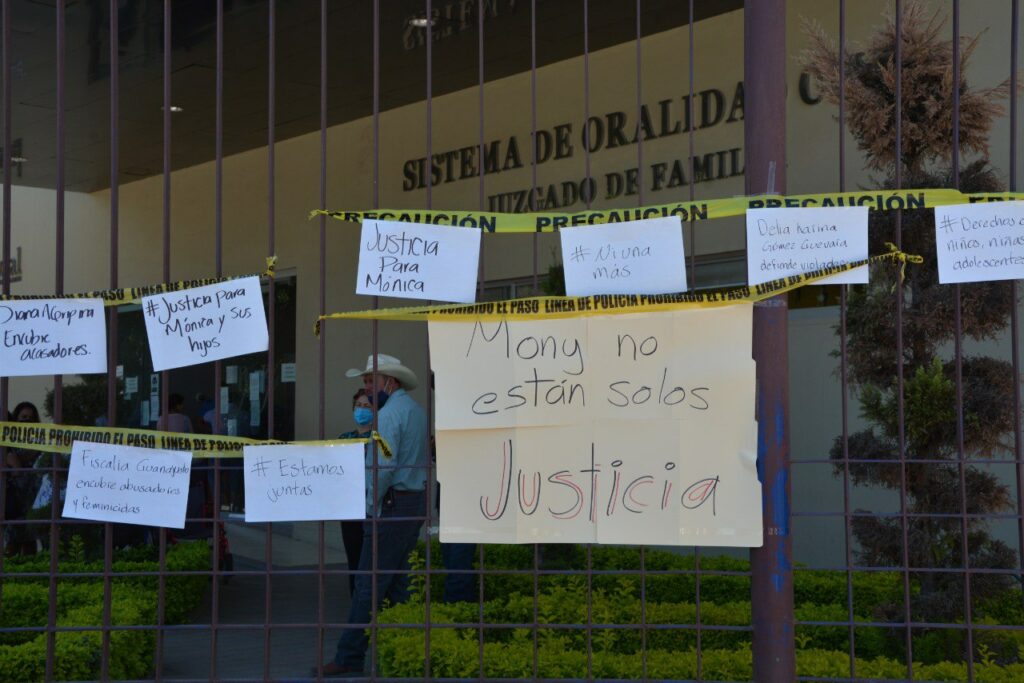 SISTEMA DE ORALIDA
JUZGADO DE FAMIL
PRECAUCIÓN PRECAUCIÓN PRECAUCIÓN
Justicia
Para
Mónica
#Ni una
más
Delia Karina
Gómez Guevara
defiende violadores
#Derechos
niños, niñas
adolescentes
LINEA DE POLICIA PROHIBIDO EL PASO LINEA DE POLICIA PROHIBIDO
Encubre
acosadores.
#Justicia para
Mónica y sus
hijos
Mony no
están solos
Justicia
POLICIA PROHIBIDO EL PASO LINEA DE POLICIA PROHIBIDO EL PASO
Fiscalía Guanajuato
encubre abusadores
y feminicidas
#Estamos
juntas